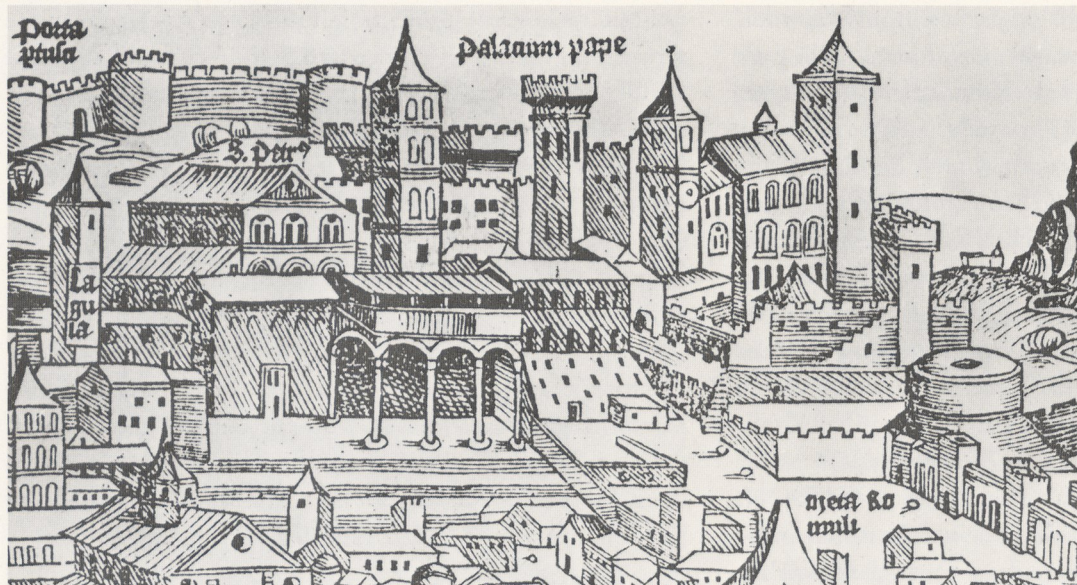 Porta
ptusa
Palacium pape
S. Petrꝰ
La
gu
lia
meta Ro
muli